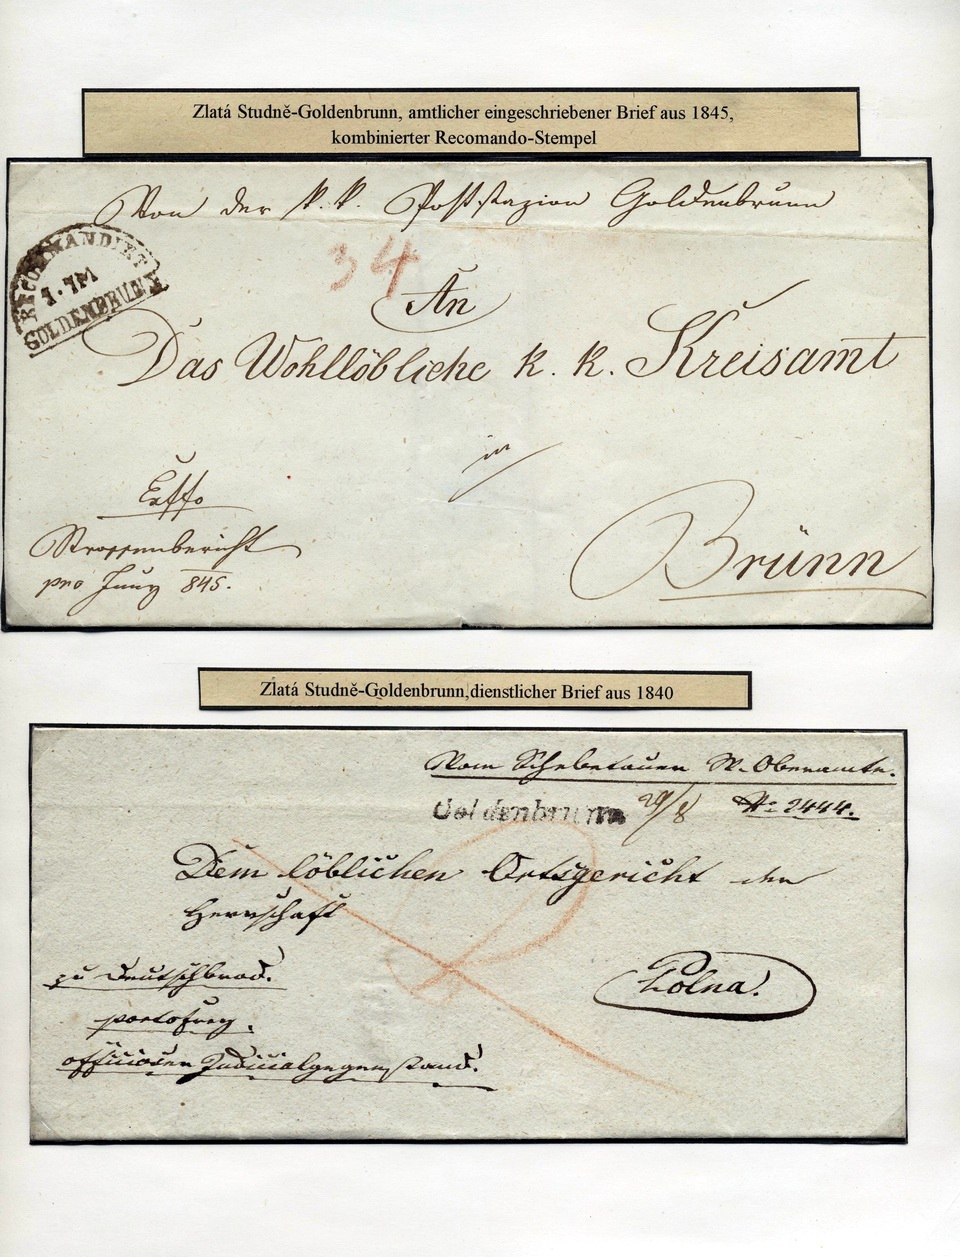 Zlatá Studně-Goldenbrunn, amtlicher eingeschriebener Brief aus 1845,
kombinierter Recomando-Stempel
Von der k. k. Poststazion Goldenbrunn
RECOMMANDIRT
GOLDENBRUNN
34
An
Das Wohllöbliche k. k. Kreisamt
in
Brünn
Exffo
Strassenbericht
pro Juny 845.
Zlatá Studně-Goldenbrunn,dienstlicher Brief aus 1840
Vom Schebetauer W. Oberamte.
Goldenbrunn 29/8 No 2444.
Dem löblichen Ortsgericht der
Herrschaft
zu Deutschbrod.
Polna.
portofrey.
officioser Judicialgegenstand.